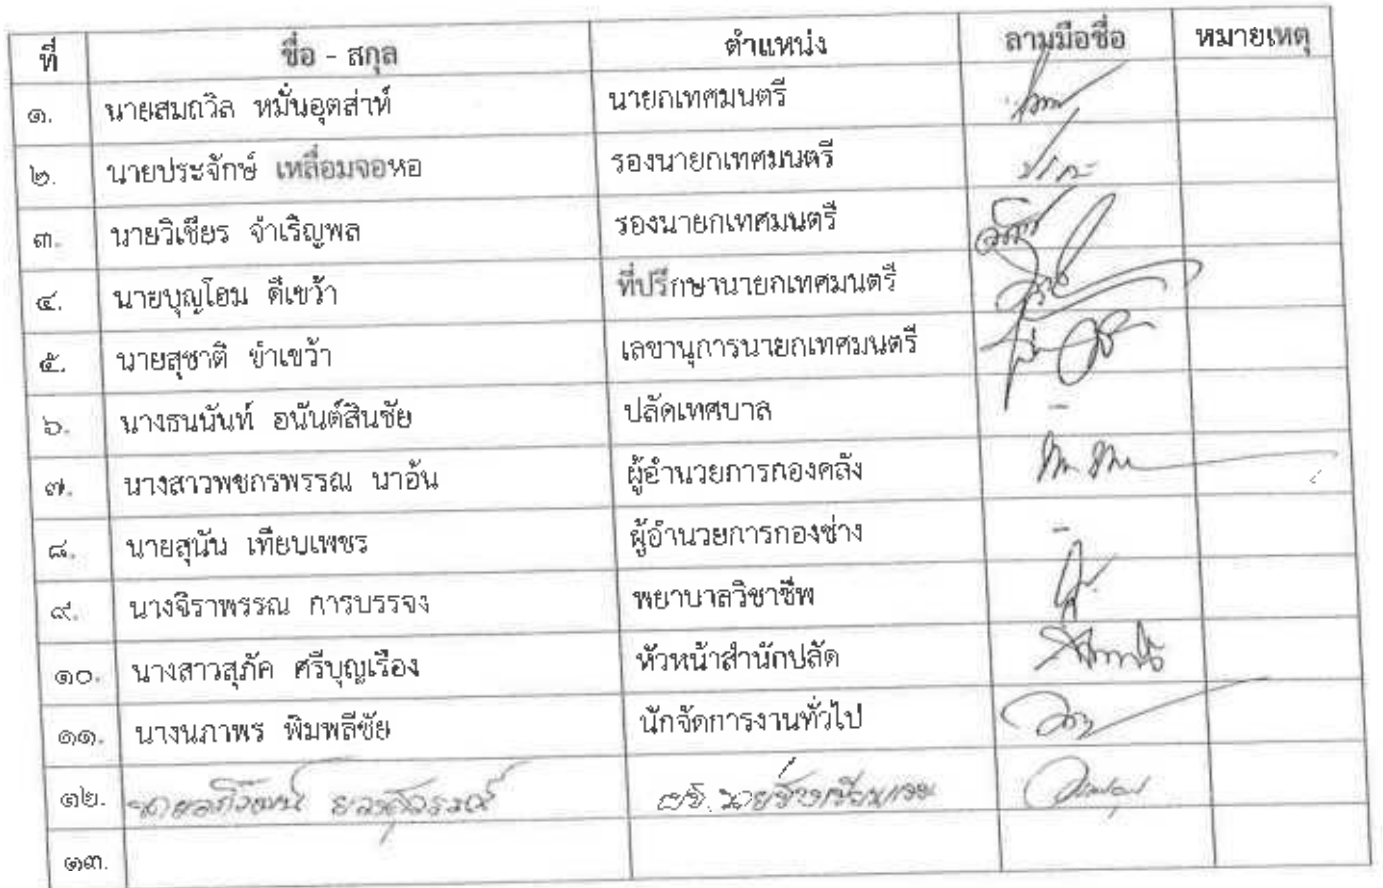 ที่ ชื่อ - สกุล ตำแหน่ง ลายมือชื่อ หมายเหตุ
๑. นายสมถวิล หมั่นอุตส่าห์ นายกเทศมนตรี
๒. นายประจักษ์ เหลื่อมจอหอ รองนายกเทศมนตรี
๓. นายวิเชียร จำเริญพล รองนายกเทศมนตรี
๔. นายบุญโฮม ดีเขว้า ที่ปรึกษานายกเทศมนตรี
๕. นายสุชาติ ขำเขว้า เลขานุการนายกเทศมนตรี
๖. นางธนนันท์ อนันต์สินชัย ปลัดเทศบาล -
๗. นางสาวพชกรพรรณ นาอ้น ผู้อำนวยการกองคลัง
๘. นายสุนัน เทียบเพชร ผู้อำนวยการกองช่าง -
๙. นางจิราพรรณ การบรรจง พยาบาลวิชาชีพ
๑๐. นางสาวสุภัค ศรีบุญเรือง หัวหน้าสำนักปลัด
๑๑. นางนภาพร พิมพลีชัย นักจัดการงานทั่วไป
๑๒. ผช. นายช่างเขียนแบบ
๑๓.